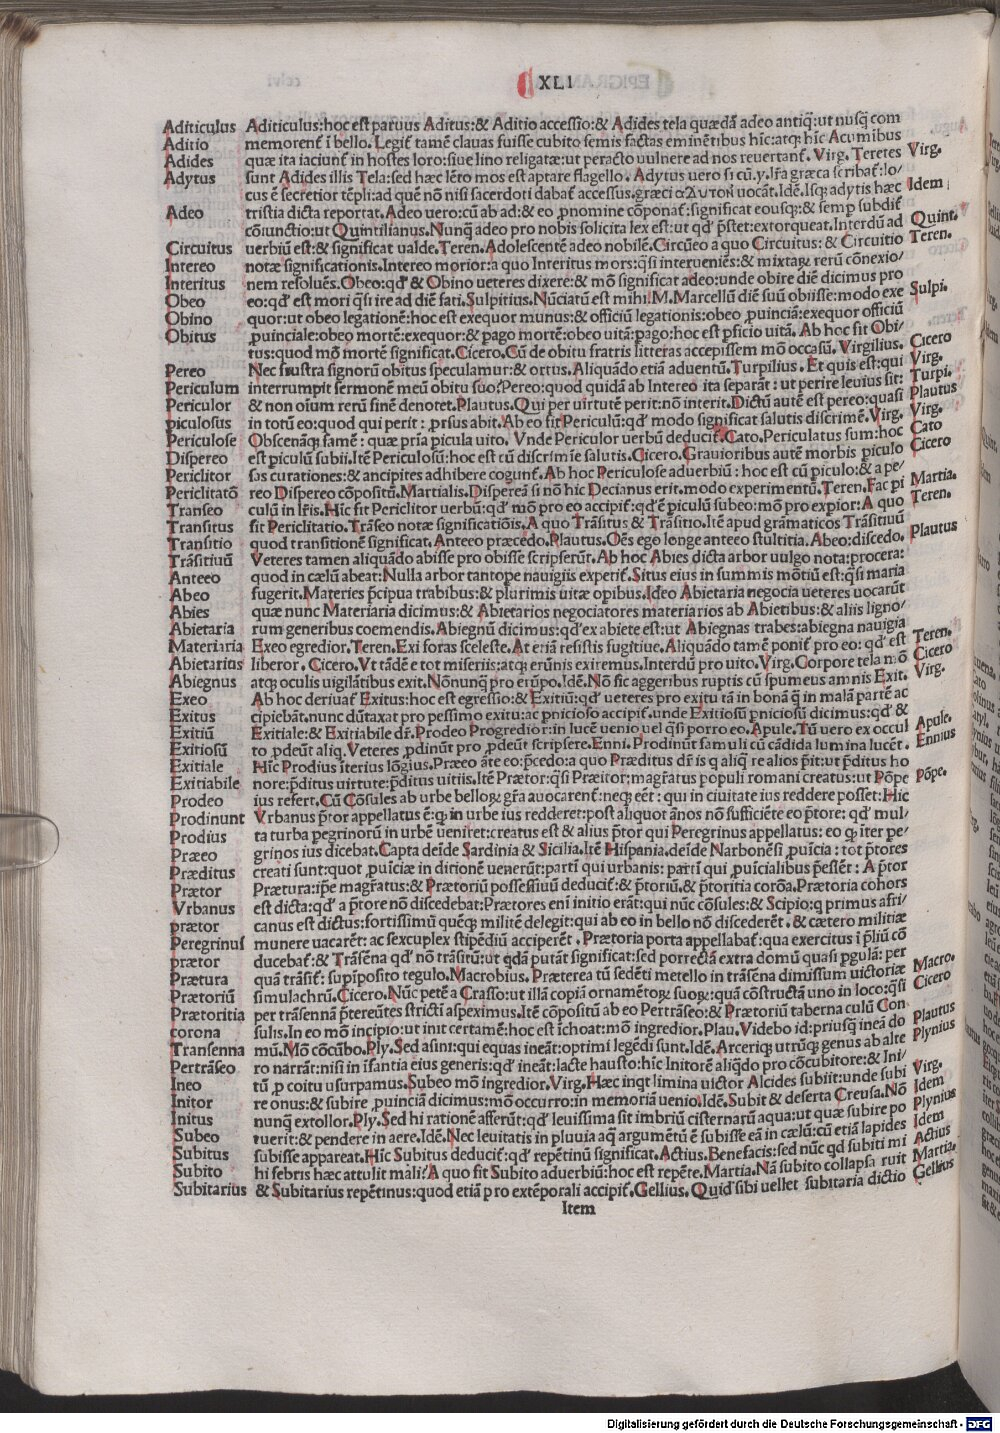 XLI
Aditiculus Aditiculus:hoc est paruus Aditus:& Aditio accessio:& Adides tela quædā adeo antiq̃:ut nusq̃ com
Aditio memorent᷑ ī bello. Legit᷑ tamē clauas fuisse cubito semis factas eminētibus hīc:atq; hīc Acumibus
Adides quæ ita iaciunt᷑ in hostes loro:siue lino religatæ:ut peracto uulnere ad nos reuertant᷑. Virg. Teretes Virg.
Adytus sunt Adides illis Tela:sed hæc lēto mos est aptare flagello. Adytus uero si cū.y.lr̄a græca scribat᷑:lo/
cus ē secretior tēpli:ad quē nō nisi sacerdoti dabat᷑ accessus.græci αΔυτον uocāt. Idē. Isq; adytis hæc Idem
Adeo tristia dicta reportat. Adeo uero:cū ab ad:& eo ꝓnomine cōponat᷑:significat eousq;:& semp subdit᷑
cōiunctio:ut Quintilianus. Nunq̃ adeo pro nobis solicita lex est:ut qd᷑ p̄stet:extorqueat. Interdū ad Quint.
Circuitus uerbiū est:& significat ualde. Teren. Adolescentē adeo nobilē. Circūeo a quo Circuitus: & Circuitio Teren.
Intereo notæ significationis. Intereo morior:a quo Interitus mors:q̃si interueniēs:& mixtaꝝ rerū cōnexio/
Interitus nem resoluēs. Obeo:qd᷑ & Obino ueteres dixere:& mō significat adeo:unde obire diē dicimus pro
Obeo eo:qd᷑ est mori q̃si ire ad diē fati. Sulpitius. Nūciatū est mihi. M. Marcellū diē suū obiisse:modo exe Sulpi.
Obino quor:ut obeo legationē:hoc est exequor munus:& officiū legationis:obeo ꝓuinciā:exequor officiū
Obitus ꝓuinciale:obeo mortē:exequor:& pago mortē:obeo uitā:pago:hoc est ꝑficio uitā. Ab hoc sit Obi/
tus:quod mō mortē significat. Cicero. Cū de obitu fratris litteras accepissem mō occasū. Virgilius. Cicero
Pereo Nec frustra signorū obitus speculamur:& ortus. Aliquādo etiā aduentū. Turpilius. Et quis est:qui Virg.
Periculum interrumpit sermonē meū obitu suo? Pereo:quod quidā ab Intereo ita separāt: ut perire leuius sit: Turpi.
Periculor & non oium rerū finē denotet. Plautus. Qui per uirtutē perit:nō interit. Dictū autē est pereo:quasi Plautus
piculosus in totū eo:quod qui perit: ꝓrsus abit. Ab eo sit Periculū:qd᷑ modo significat salutis discrimē. Virg. Virg.
Periculose Obscenāq; famē: quæ pr̄ia picula uito. Vnde Periculor uerbū deducit᷑. Cato. Periculatus sum:hoc Cato
Dispereo est piculū subii. Itē Periculosū:hoc est cū discrimīe salutis. Cicero. Grauioribus autē morbis piculo Cicero
Periclitor sas curationes:& ancipites adhibere cogunt᷑. Ab hoc Periculose aduerbiū: hoc est cū piculo:& a pe/
Periclitatō reo Dispereo cōpositū. Martialis. Dispereā si nō hic Decianus erit.modo experimentū. Teren. Fac pi Martia.
Transeo culū in lr̄is. Hīc fit Periclitor uerbū:qd᷑ mō pro eo accipit᷑:qd᷑ ē piculū subeo:mō pro expior. A quo Teren.
Transitus sit Periclitatio. Trāseo notæ significatiōis. A quo Trāsitus & Trāsitio. Itē apud grāmaticos Trāsitiuū
Transitio quod transitionē significat. Anteeo præcedo. Plautus. Oēs ego longe anteeo stultitia. Abeo:discedo. Plautus
Trāsitiuū Veteres tamen aliquādo abisse pro obisse scripserūt. Ab hoc Abies dicta arbor uulgo nota:procera:
Anteeo quod in cælū abeat:Nulla arbor tantope nauigiis experit᷑. Situs eius in summis mōtiū est:q̃si maria
Abeo fugerit. Materies p̄cipua trabibus:& plurimis uitæ opibus. Ideo Abietaria negocia ueteres uocarūt
Abies quæ nunc Materiaria dicimus:& Abietarios negociatores materiarios ab Abietibus:& aliis ligno/
Abietaria rum generibus coemendis. Abiegnū dicimus:qd᷑ ex abiete est:ut Abiegnas trabes:abiegna nauigia
Materiaria Exeo egredior. Teren. Exi foras sceleste. At etiā resistis fugitiue. Aliquādo tamē ponit᷑ pro eo: qd᷑ est Teren.
Abietarius liberor. Cicero. Vt tādē e tot miseriis:atq; erūnis exiremus. Interdū pro uito. Virg. Corpore tela mō Cicero
Abiegnus atq; oculis uigilātibus exit. Nōnunq̃ pro erūpo. Idē. Nō sic aggeribus ruptis cū spumeus amnis Exit. Virg.
Exeo Ab hoc deriuat᷑ Exitus:hoc est egressio:& Exitiū:qd᷑ ueteres pro exitu tā in bonā q̃ in malā partē ac
Exitus cipiebāt.nunc dūtaxat pro pessimo exitu:ac pnicioso accipit᷑.unde Exitiosū pniciosū dicimus:qd᷑ &
Exitiū Exitiale:& Exitiabile dr̄. Prodeo Progredior:in lucē uenio uel q̃si porro eo. Apule. Tū uero ex occul Apule.
Exitiosū to ꝓdeūt aliq. Veteres ꝓdinūt pro ꝓdeūt scripsere. Enni. Prodinūt famuli cū cādida lumina lucēt. Ennius
Exitiale Hīc Prodius īterius lōgius. Præeo āte eo:p̄cedo:a quo Præditus dr̄ is q aliq̄ re alios p̄it:ut p̄ditus ho
Exitiabile nore:p̄ditus uirtute:p̄ditus uitiis. Itē Prætor:q̃si Præitor:magr̄atus populi romani creatus:ut Pōpe Pōpe.
Prodeo ius refert. Cū Cōsules ab urbe belloꝝ gr̄a auocarent᷑:neq; eēt : qui in ciuitate ius reddere posset:Hic
Prodinunt Vrbanus p̄tor appellatus ē:q; in urbe ius redderet:post aliquot ānos nō sufficiēte eo p̄tore: qd᷑ mul/
Prodius ta turba pegrinorū in urbē ueniret:creatus est & alius p̄tor qui Peregrinus appellatus: eo q; iter pe/
Præeo grinos ius dicebat. Capta deīde Sardinia & Sicilia. Itē Hispania.deīde Narbonēsi ꝓuīcia: tot p̄tores
Præditus creati sunt:quot ꝓuīciæ in ditionē uenerūt:partī qui urbanis: partī qui ꝓuīcialibus p̄eslēt: A p̄tor
Prætor Prætura:ip̄e magr̄atus:& Prætoriū possessiuū deducit᷑:& p̄toriū.& p̄toritia corōa. Prætoria cohors
Vrbanus est dicta:qd᷑ a p̄tore nō discedebat:Prætores eni initio erāt:qui nūc cōsules:& Scipio:q primus afri/
prætor canus est dictus:fortissimū quēq; militē delegit:qui ab eo in bello nō discederēt. & cætero militiæ
Peregrinus munere uacarēt: ac sexcuplex stipēdiū acciperēt. Prætoria porta appellabat᷑:qua exercitus ī p̄liū cō
prætor ducebat᷑:& Trāsēna qd᷑ nō trāsitū:ut qdā putāt significat:sed porrectā extra domū quasi pgulā: per
Prætura quā trāsit᷑: supīposito tegulo. Macrobius. Præterea tū sedēti metello in trāsēna dimissum uictoriæ Macro.
Prætoriū simulachrū. Cicero. Nūc petē a Crasso:ut illā copiā ornamētoꝝ suoꝝ:quā cōstructā uno in loco:q̃si Cicero
Prætoritia per trāsennā p̄tereūtes stricti aspeximus. Itē cōpositū ab eo Pertrāseo:& Prætoriū taberna culū Con
corona sulis. In eo mō incipio:ut init certamē:hoc est īchoat:mō ingredior. Plau. Videbo id:priusq̃ ineā do Plautus
Transenna mū. Mō cōcūbo. Ply. Sed asini:qui equas ineāt:optimi legēdi sunt. Idē. Arceriq; utrūq; genus ab alte Plynius
Pertrāseo ro narrāt:nisi in īfantia eius generis:qd᷑ ineāt:lacte hausto:hīc Initorē aliq̄do pro cōcubitore:& Ini/
Ineo tū ꝓ coitu usurpamus. Subeo mō ingredior. Virg. Hæc inqt limina uictor Alcides subiit:unde subi Virg.
Initor re onus:& subire ꝓuinciā dicimus:mō occurro:in memoriā uenio. Idē. Subit & deserta Creusa. Nō Idem
Initus nunq̃ extollor. Ply. Sed hi rationē afferūt:qd᷑ leuissima sit imbriū cisternarū aqua:ut quæ subire po Plynius
Subeo tuerit:& pendere in aere. Idē. Nec leuitatis in pluuia aq̄ argumētū ē subisse eā in cælū:cū etiā lapides Idem
Subitus subisse appareat. Hīc Subitus deducit᷑:qd᷑ repētinū significat. Actius. Benefacis:sed nūc qd subiti mi Actius
Subito hi febris hæc attulit mali? A quo sit Subito aduerbiū:hoc est repēte. Martia. Nā subito collapsa ruit Martia.
Subitarius & Subitarius repētinus:quod etiā pro extēporali accipit᷑. Gellius. Quid sibi uellet subitaria dictio Gellius
Item
Digitalisierung gefördert durch die Deutsche Forschungsgemeinschaft - DFG